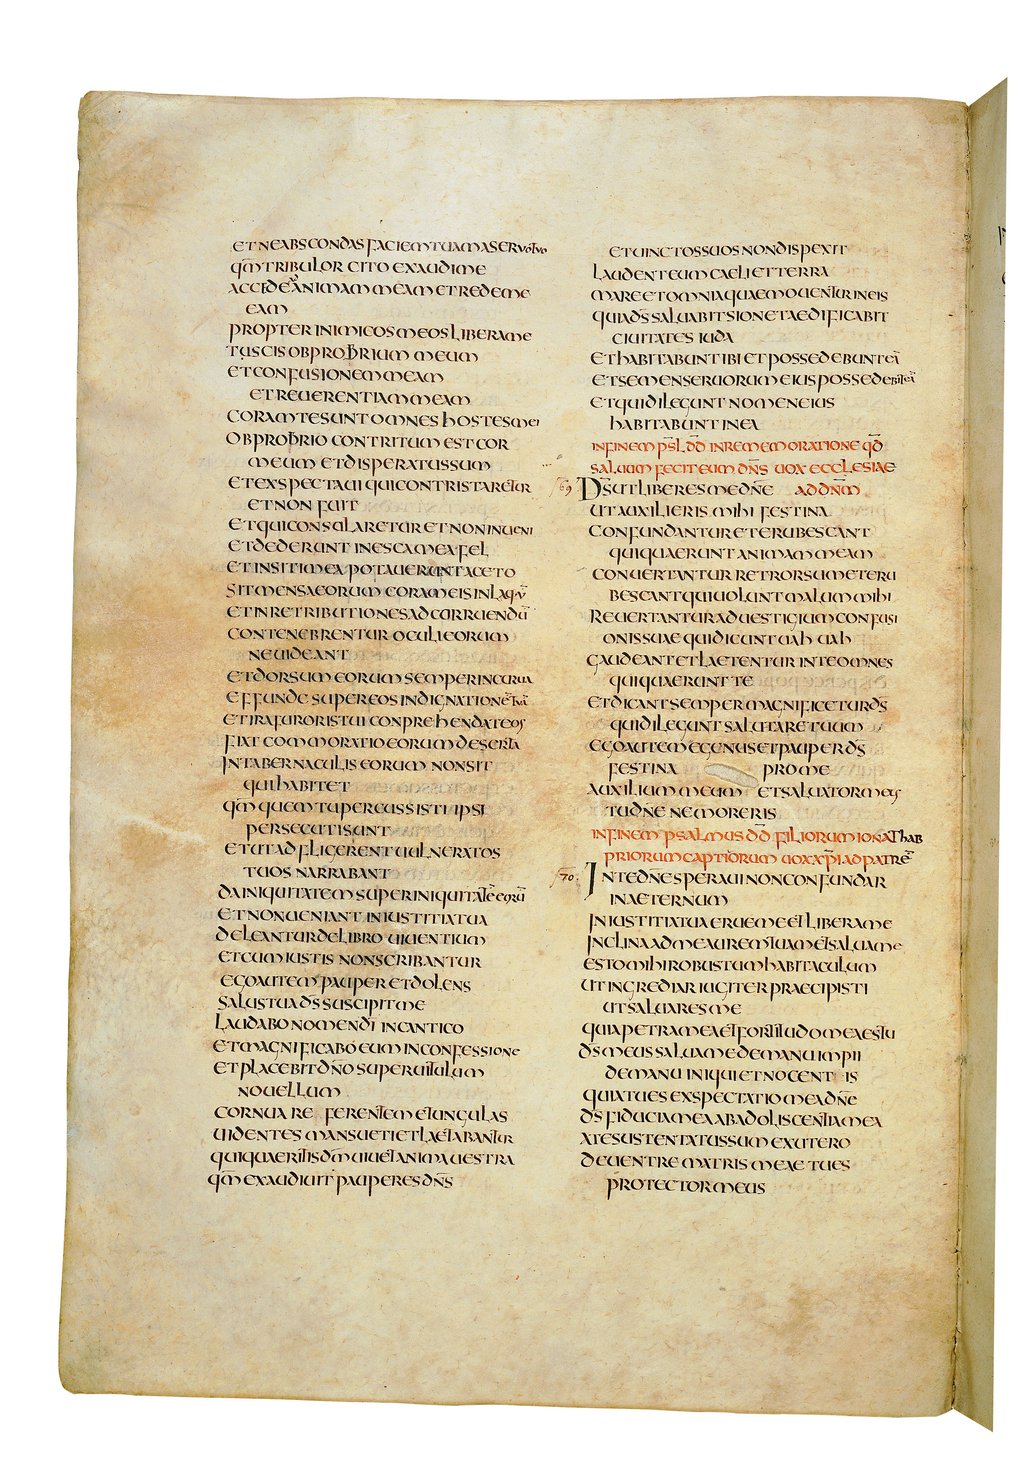 ET NE ABSCONDAS FACIEM TUAM A SERVO TUO
QM̄ TRIBULOR CITO EXAUDI ME
ACCIDE ANIMAM MEAM ET REDEME
EAM
PROPTER INIMICOS MEOS LIBERA ME
TU SCIS OBPROBRIUM MEUM
ET CONFUSIONEM MEAM
ET REUERENTIAM MEAM
CORAM TE SUNT OMNES HOSTES MEI
OBPROBRIO CONTRITUM EST COR
MEUM ET DISPERATUS SUM
ET EXSPECTAUI QUI CONTRISTARETUR
ET NON FUIT
ET QUI CONSOLARETUR ET NON INUENI
ET DEDERUNT IN ESCAM EX FEL
ET IN SITI MEA POTAUERUNT ACETO
SIT MENSA EORUM CORAM EIS IN LAQV̄
ET IN RETRIBUTIONES AD CORRUENDŪ
CONTENEBRENTUR OCULI EORUM
NE UIDEANT
ET DORSUM EORUM SEMPER INCURUA
EFFUNDE SUPER EOS INDIGNATIONĒ TUĀ
ET IRA FURORIS TUI CONPREHENDAT EOS
FIAT COMMORATIO EORUM DESERTA
IN TABERNACULIS EORUM NON SIT
QUI HABITET
QM̄ QUEM TU PERCUSSISTI IPSI
PERSECUTI SUNT
ET UT ADFLIGERENT UULNERATOS
TUOS NARRABANT
DA INIQUITATEM SUPER INIQUITATĒ EORŪ
ET NON UENIANT IN IUSTITIA TUA
DELEANTUR DE LIBRO UIUENTIUM
ET CUM IUSTIS NON SCRIBANTUR
EGO AUTEM PAUPER ET DOLENS
SALUS TUA D̄S SUSCIPIT ME
LAUDABO NOMEN DĪ IN CANTICO
ET MAGNIFICABO EUM IN CONFESSIONE
ET PLACEBIT DN̄O SUPER UITULUM
NOUELLUM
CORNUA REFERENTEM ET UNGULAS
UIDENTES MANSUETI ET LAETABANTUR
QUI QUAERITIS DM̄ UIUET ANIMA UESTRA
QM̄ EXAUDIUIT PAUPERES DN̄S
ET UINCTOS SUOS NON DISPEXIT
LAUDENT EUM CAELI ET TERRA
MARE ET OMNIA QUAE MOUENTUR IN EIS
QUIA D̄S SALUABIT SION ET AEDIFICABIT
CIUITATES IUDA
ET HABITABUNT IBI ET POSSEDEBUNT EĀ
ET SEMEN SERUORUM EIUS POSSEDEBIT EĀ
ET QUI DILEGUNT NOMEN EIUS
HABITABUNT IN EA
IN FINEM PSL D̄D IN REMEMORATIONE QD̄
SALUUM FECIT EUM DN̄S UOX ECCLESIAE
69 D̄S UT LIBERES ME DN̄E AD DN̄M
UT AUXILIERIS MIHI FESTINA
CONFUNDANTUR ET ERUBESCANT
QUI QUAERUNT ANIMAM MEAM
CONUERTANTUR RETRORSUM ET ERU
BESCANT QUI UOLUNT MALUM MIHI
REUERTANTUR AD UESTIGIUM CONFUSI
ONIS SUAE QUI DICUNT UAH UAH
GAUDEANT ET LAETENTUR IN TE OMNES
QUI QUAERUNT TE
ET DICANT SEMPER MAGNIFICETUR D̄S
QUI DILEGUNT SALUTARE TUUM
EGO AUTEM EGENUS ET PAUPER D̄S
FESTINA PRO ME
AUXILIUM MEUM ET SALUATOR MEUS
TU DN̄E NE MORERIS
IN FINEM PSALMUS D̄D FILIORUM IONATHAB
PRIORUM CAPTIORUM UOX XP̄I AD PATRĒ
70 IN TE DN̄E SPERAUI NON CONFUNDAR
IN AETERNUM
IN IUSTITIA TUA ERUE ME ET LIBERA ME
INCLINA AD ME AUREM TUAM ET SALUA ME
ESTO MIHI ROBUSTUM HABITACULUM
UT INGREDIAR IUGITER PRAECIPISTI
UT SALUARES ME
QUIA PETRA MEA ET FORTITUDO MEA ES TU
D̄S MEUS SALUA ME DE MANU IMPII
DE MANU INIQUI ET NOCENTIS
QUIA TU ES EXSPECTATIO MEA DN̄E
D̄S FIDUCIA MEA AB ADOLISCENTIA MEA
A TE SUSTENTATUS SUM EX UTERO
DE UENTRE MATRIS MEAE TU ES
PROTECTOR MEUS